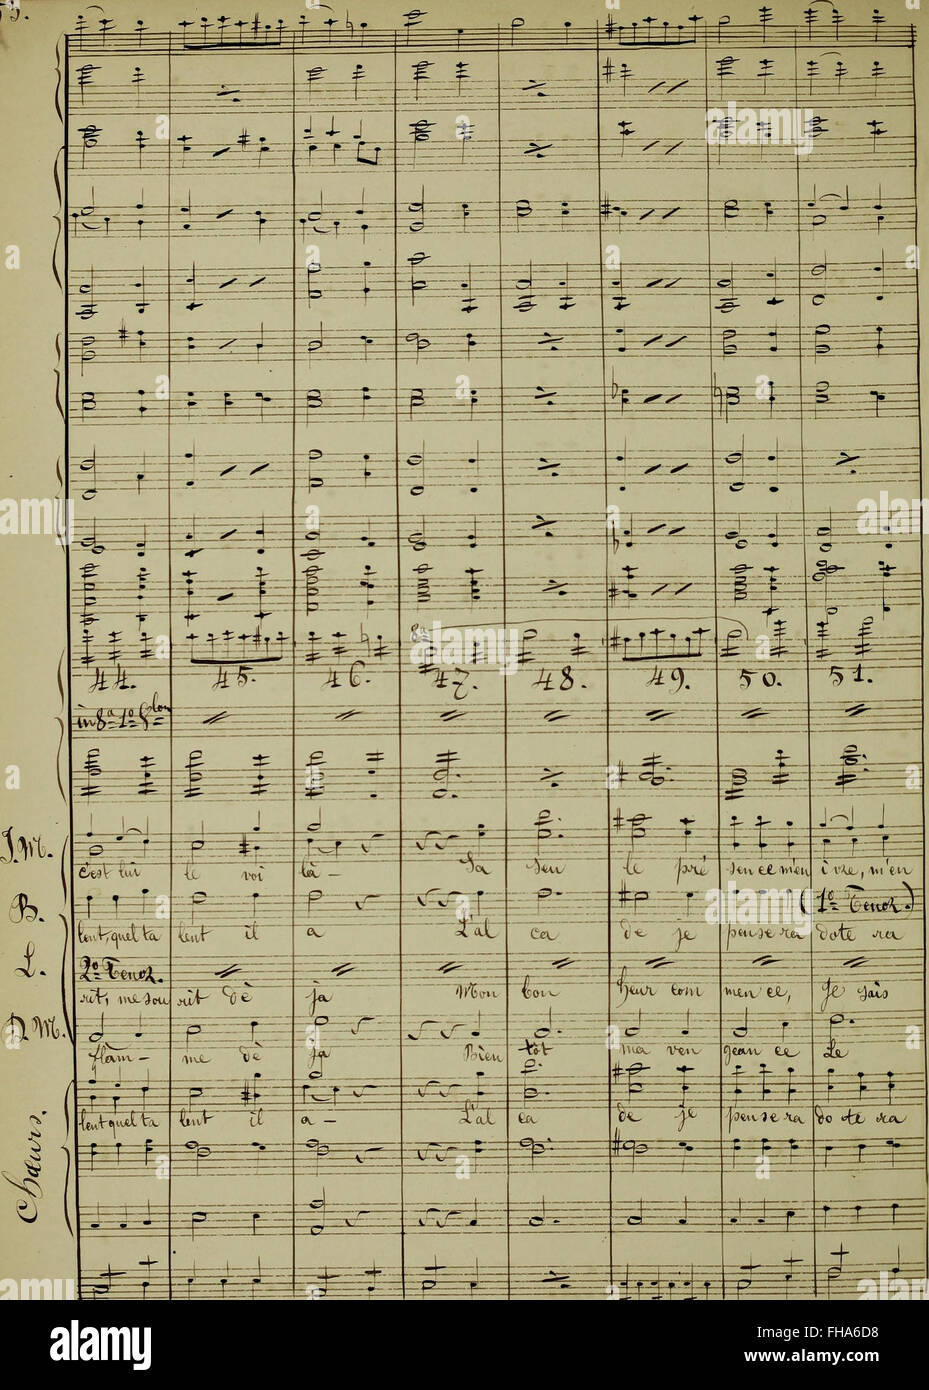 44. 45. 46. 47. 48. 49. 50. 51.
in 8ª 1º
J. M.
c'est lui le voi là - Sa seu le pré sen ce m'en i vre, m'en
B.
(1º Tenor.)
lent, quel ta lent il a L'al ca de je pen se ra do te ra
L.
2º Tenor.
rit, me sou rit dè ja Mon bon heur com men ce, Je sais
D. M.
flâm - me dè ja Bien tôt ma ven gean ce Le
Chœurs.
lent quel ta lent il a - L'al ca de je pen se ra do te ra
alamy
a
alamy stock photo
FHA6D8
www.alamy.com